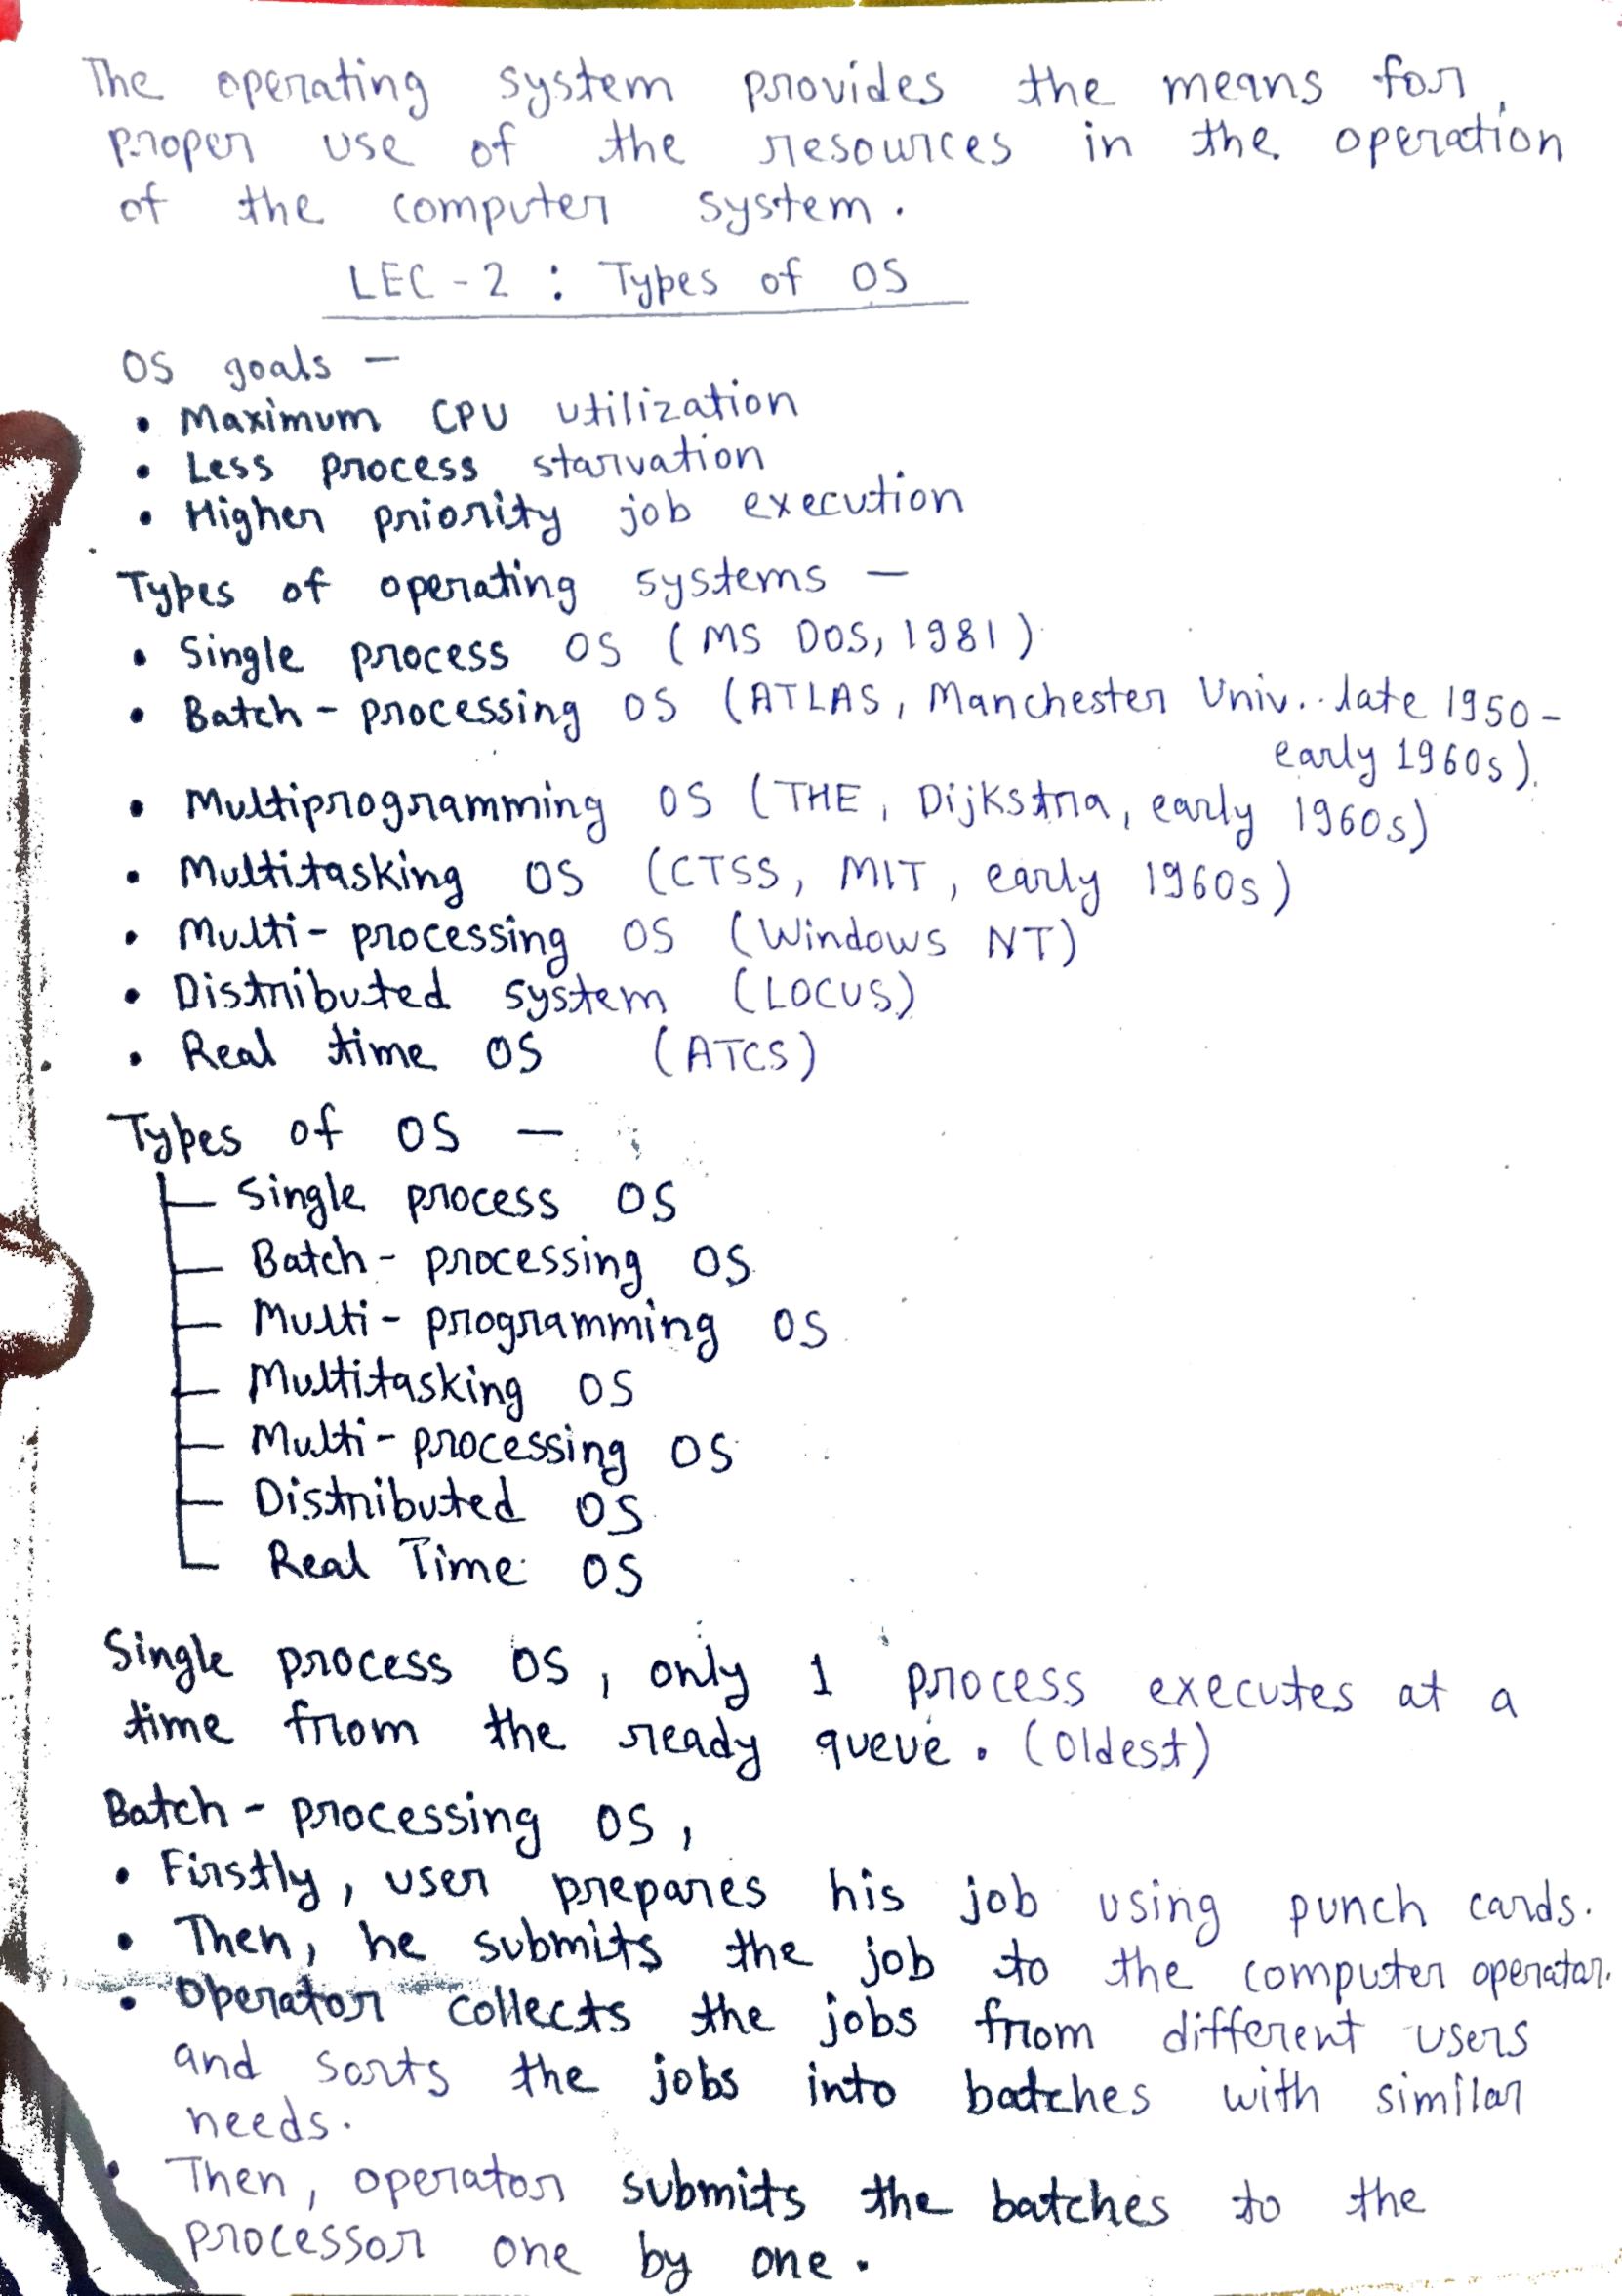 The operating system provides the means for
proper use of the resources in the operation
of the computer system.
LEC - 2 : Types of OS
OS goals —
• Maximum CPU utilization
• Less process starvation
• Higher priority job execution
Types of operating systems —
• Single process OS (MS DOS, 1981)
• Batch - processing OS (ATLAS, Manchester Univ. late 1950 -
early 1960s).
• Multiprogramming OS (THE, Dijkstra, early 1960s)
• Multitasking OS (CTSS, MIT, early 1960s)
• Multi - processing OS (Windows NT)
• Distributed system (LOCUS)
• Real time OS (ATCS)
Types of OS —
Single process OS
Batch - processing OS
Multi - programming OS
Multitasking OS
Multi - processing OS
Distributed OS
Real Time OS
Single process OS, only 1 process executes at a
time from the ready queue. (Oldest)
Batch - processing OS,
• Firstly, user prepares his job using punch cards.
• Then, he submits the job to the computer operator.
• Operator collects the jobs from different users
and sorts the jobs into batches with similar
needs.
• Then, operator submits the batches to the
processor one by one.